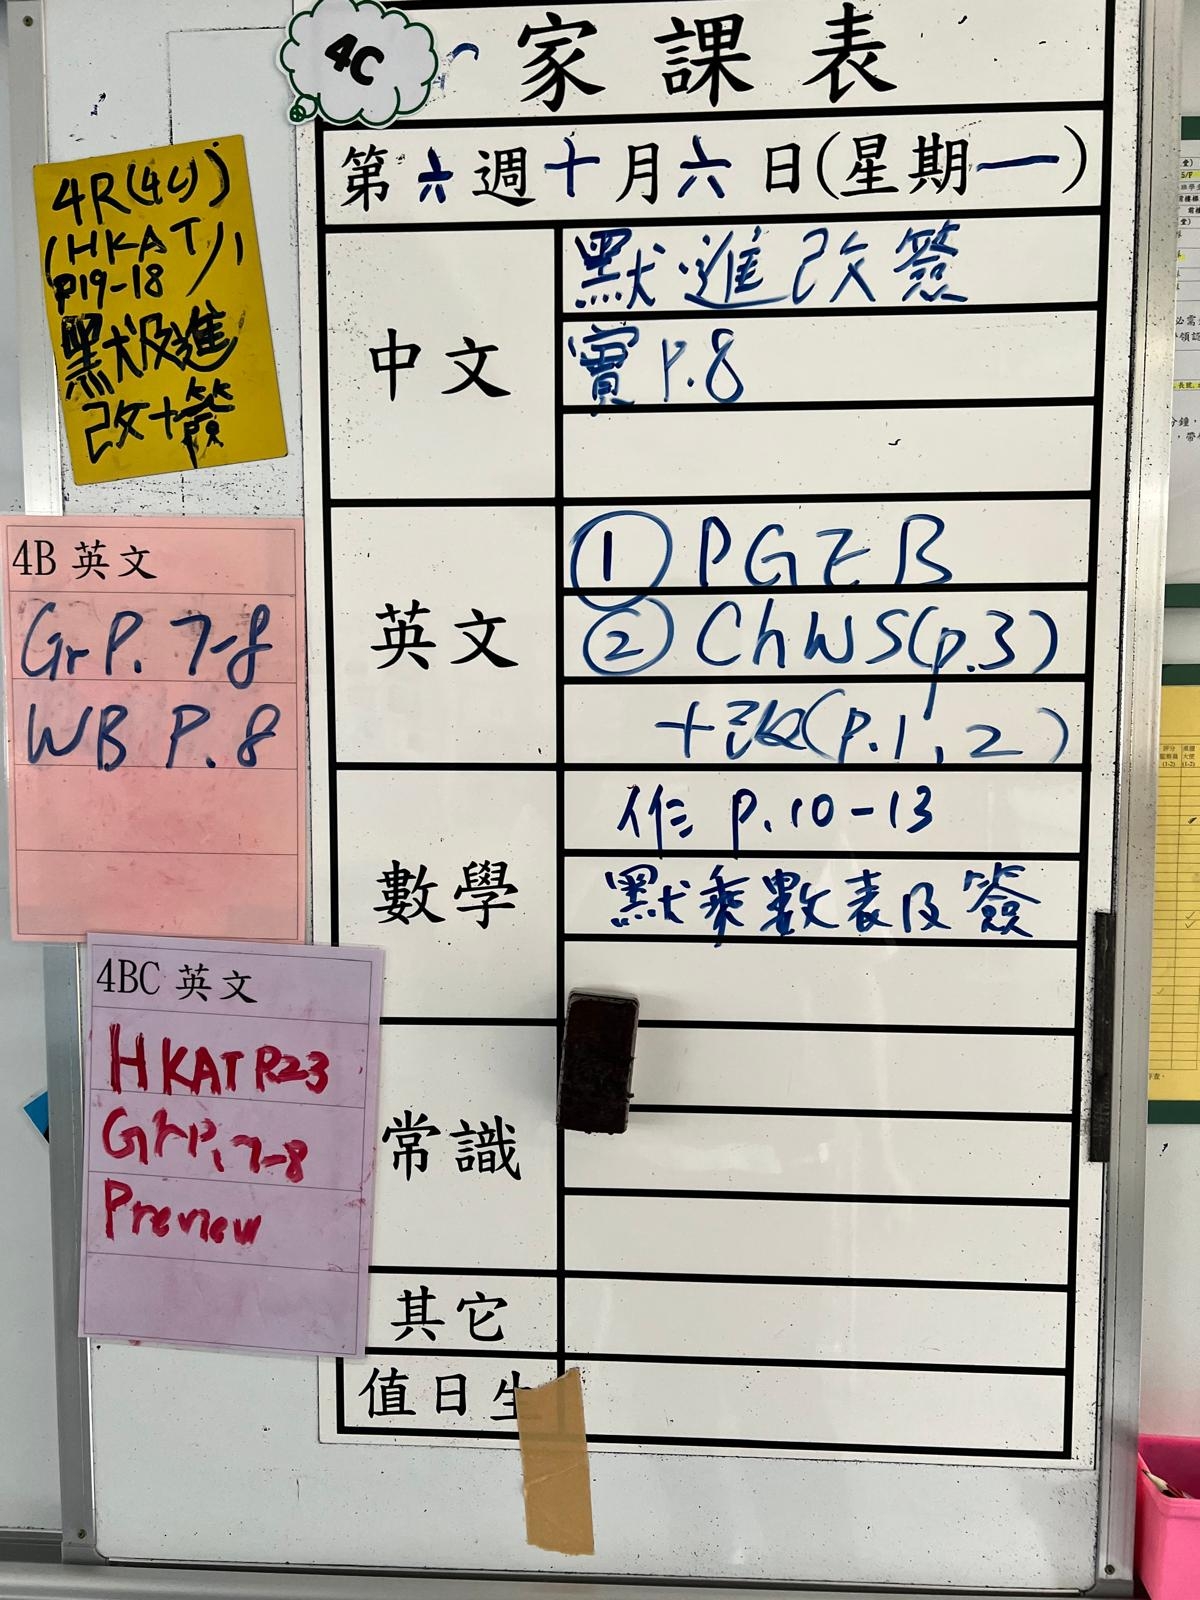 4C
家課表
第六週十月六日(星期一)
中文
默進改簽
寶 P.8
英文
① PGEB
② ChWS(p.3)
+改(p.1, 2)
數學
作 p.10-13
默乘數表及簽
常識
其它
值日生
4R(4
(HKAT)
P19-18
默及進
改+簽
4B 英文
Gr P. 7-8
WB P. 8
4BC 英文
HKAT P.23
Gr P. 7-8
Preview